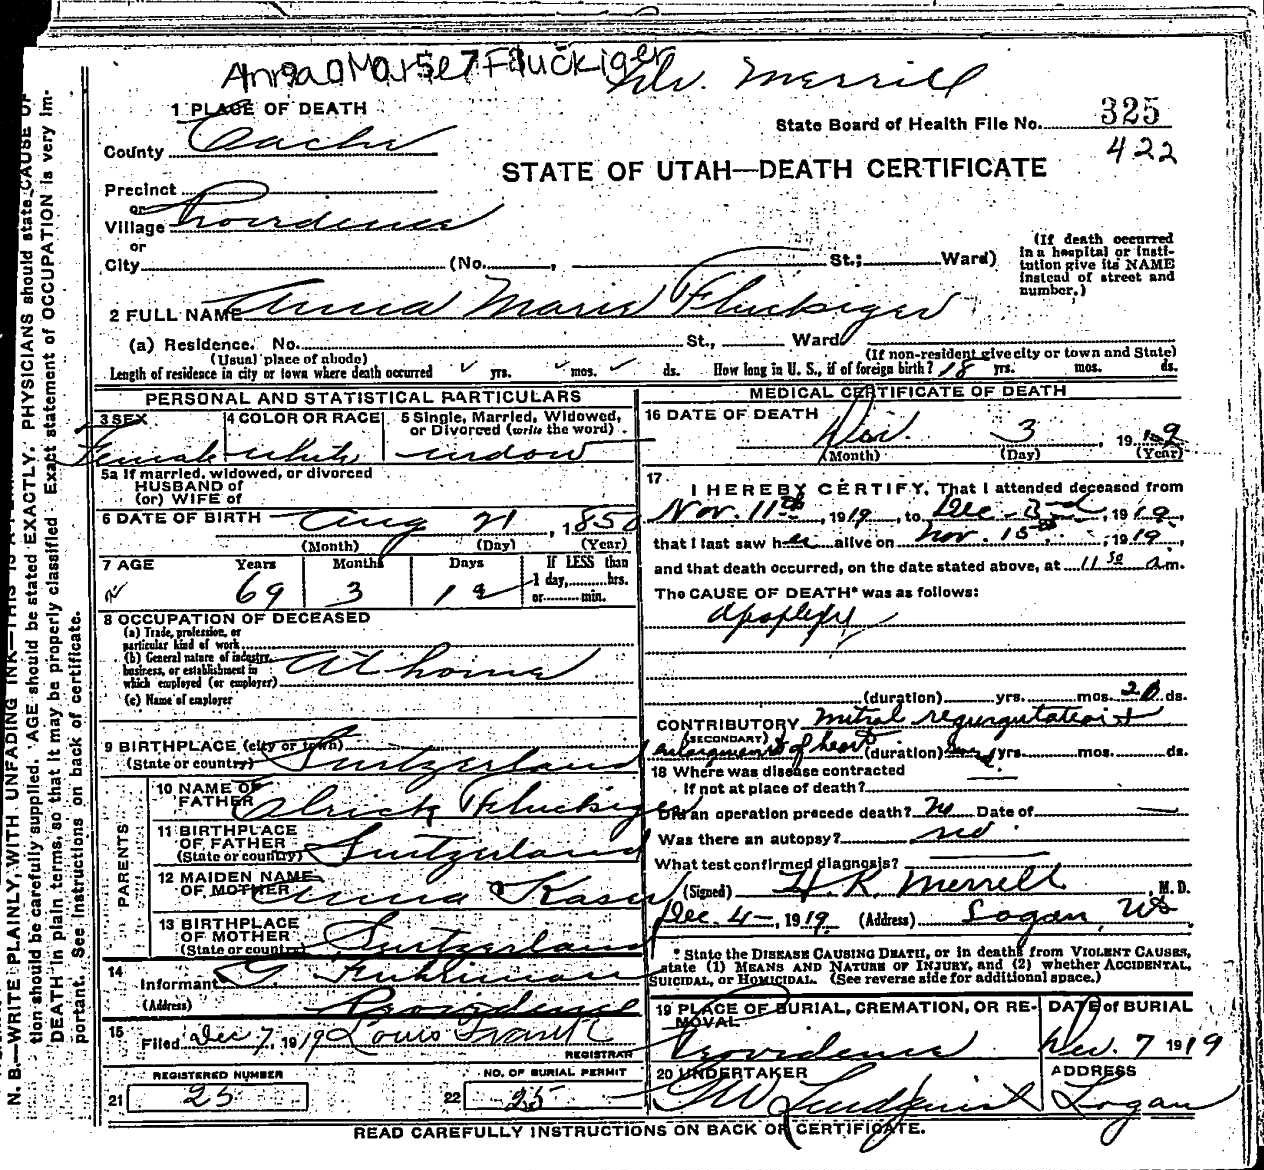 Dr. Merrill
1 PLACE OF DEATH
State Board of Health File No. 325
County Cache
422
STATE OF UTAH—DEATH CERTIFICATE
Precinct
or
Village Providence
or
City (No. , St.; Ward)
(If death occurred
in a hospital or insti-
tution give its NAME
instead of street and
number.)
2 FULL NAME Anna Marie Fluckiger
(a) Residence. No. St., Ward
(Usual place of abode) (If non-resident give city or town and State)
Length of residence in city or town where death occurred yrs. mos. ds. How long in U. S., if of foreign birth? 18 yrs. mos. ds.
PERSONAL AND STATISTICAL PARTICULARS
3 SEX
Female
4 COLOR OR RACE
White
5 Single, Married, Widowed,
or Divorced (write the word)
widow
5a If married, widowed, or divorced
HUSBAND of
(or) WIFE of
6 DATE OF BIRTH Aug 21, 1850
(Month) (Day) (Year)
7 AGE Years Months Days
69 3 12
If LESS than
1 day, hrs.
or min.
8 OCCUPATION OF DECEASED
(a) Trade, profession, or
particular kind of work
(b) General nature of industry,
business, or establishment in
which employed (or employer) At home
(c) Name of employer
9 BIRTHPLACE (city or town)
(State or country) Switzerland
PARENTS
10 NAME OF
FATHER Ulrick Fluckiger
11 BIRTHPLACE
OF FATHER
(State or country) Switzerland
12 MAIDEN NAME
OF MOTHER Anna Kaser
13 BIRTHPLACE
OF MOTHER
(State or country) Switzerland
14
Informant G Fuhriman
(Address) Providence
15
Filed Dec 7, 1919 Louis Frank
REGISTRAR
REGISTERED NUMBER
21 25
NO. OF BURIAL PERMIT
22 25
MEDICAL CERTIFICATE OF DEATH
16 DATE OF DEATH
Dec. 3, 1919
(Month) (Day) (Year)
17
I HEREBY CERTIFY, That I attended deceased from
Nov. 11th, 1919, to Dec - 3rd, 1919,
that I last saw her alive on Nov. 15th, 1919,
and that death occurred, on the date stated above, at 11 50 a.m.
The CAUSE OF DEATH* was as follows:
apoplexy
(duration) yrs. mos. 20 ds.
CONTRIBUTORY Mitral regurgitation &
(SECONDARY)
enlargement of heart (duration) yrs. mos. ds.
18 Where was disease contracted
if not at place of death?
Did an operation precede death? no Date of
Was there an autopsy? no.
What test confirmed diagnosis?
(Signed) H. R. Merrell, M. D.
Dec. 4-, 1919. (Address) Logan, Ut
* State the DISEASE CAUSING DEATH, or in deaths from VIOLENT CAUSES,
state (1) MEANS AND NATURE OF INJURY, and (2) whether ACCIDENTAL,
SUICIDAL, or HOMICIDAL. (See reverse side for additional space.)
19 PLACE OF BURIAL, CREMATION, OR RE-
MOVAL
Providence
DATE of BURIAL
Dec. 7 1919
20 UNDERTAKER
GW Lindquist
ADDRESS
Logan
READ CAREFULLY INSTRUCTIONS ON BACK OF CERTIFICATE.